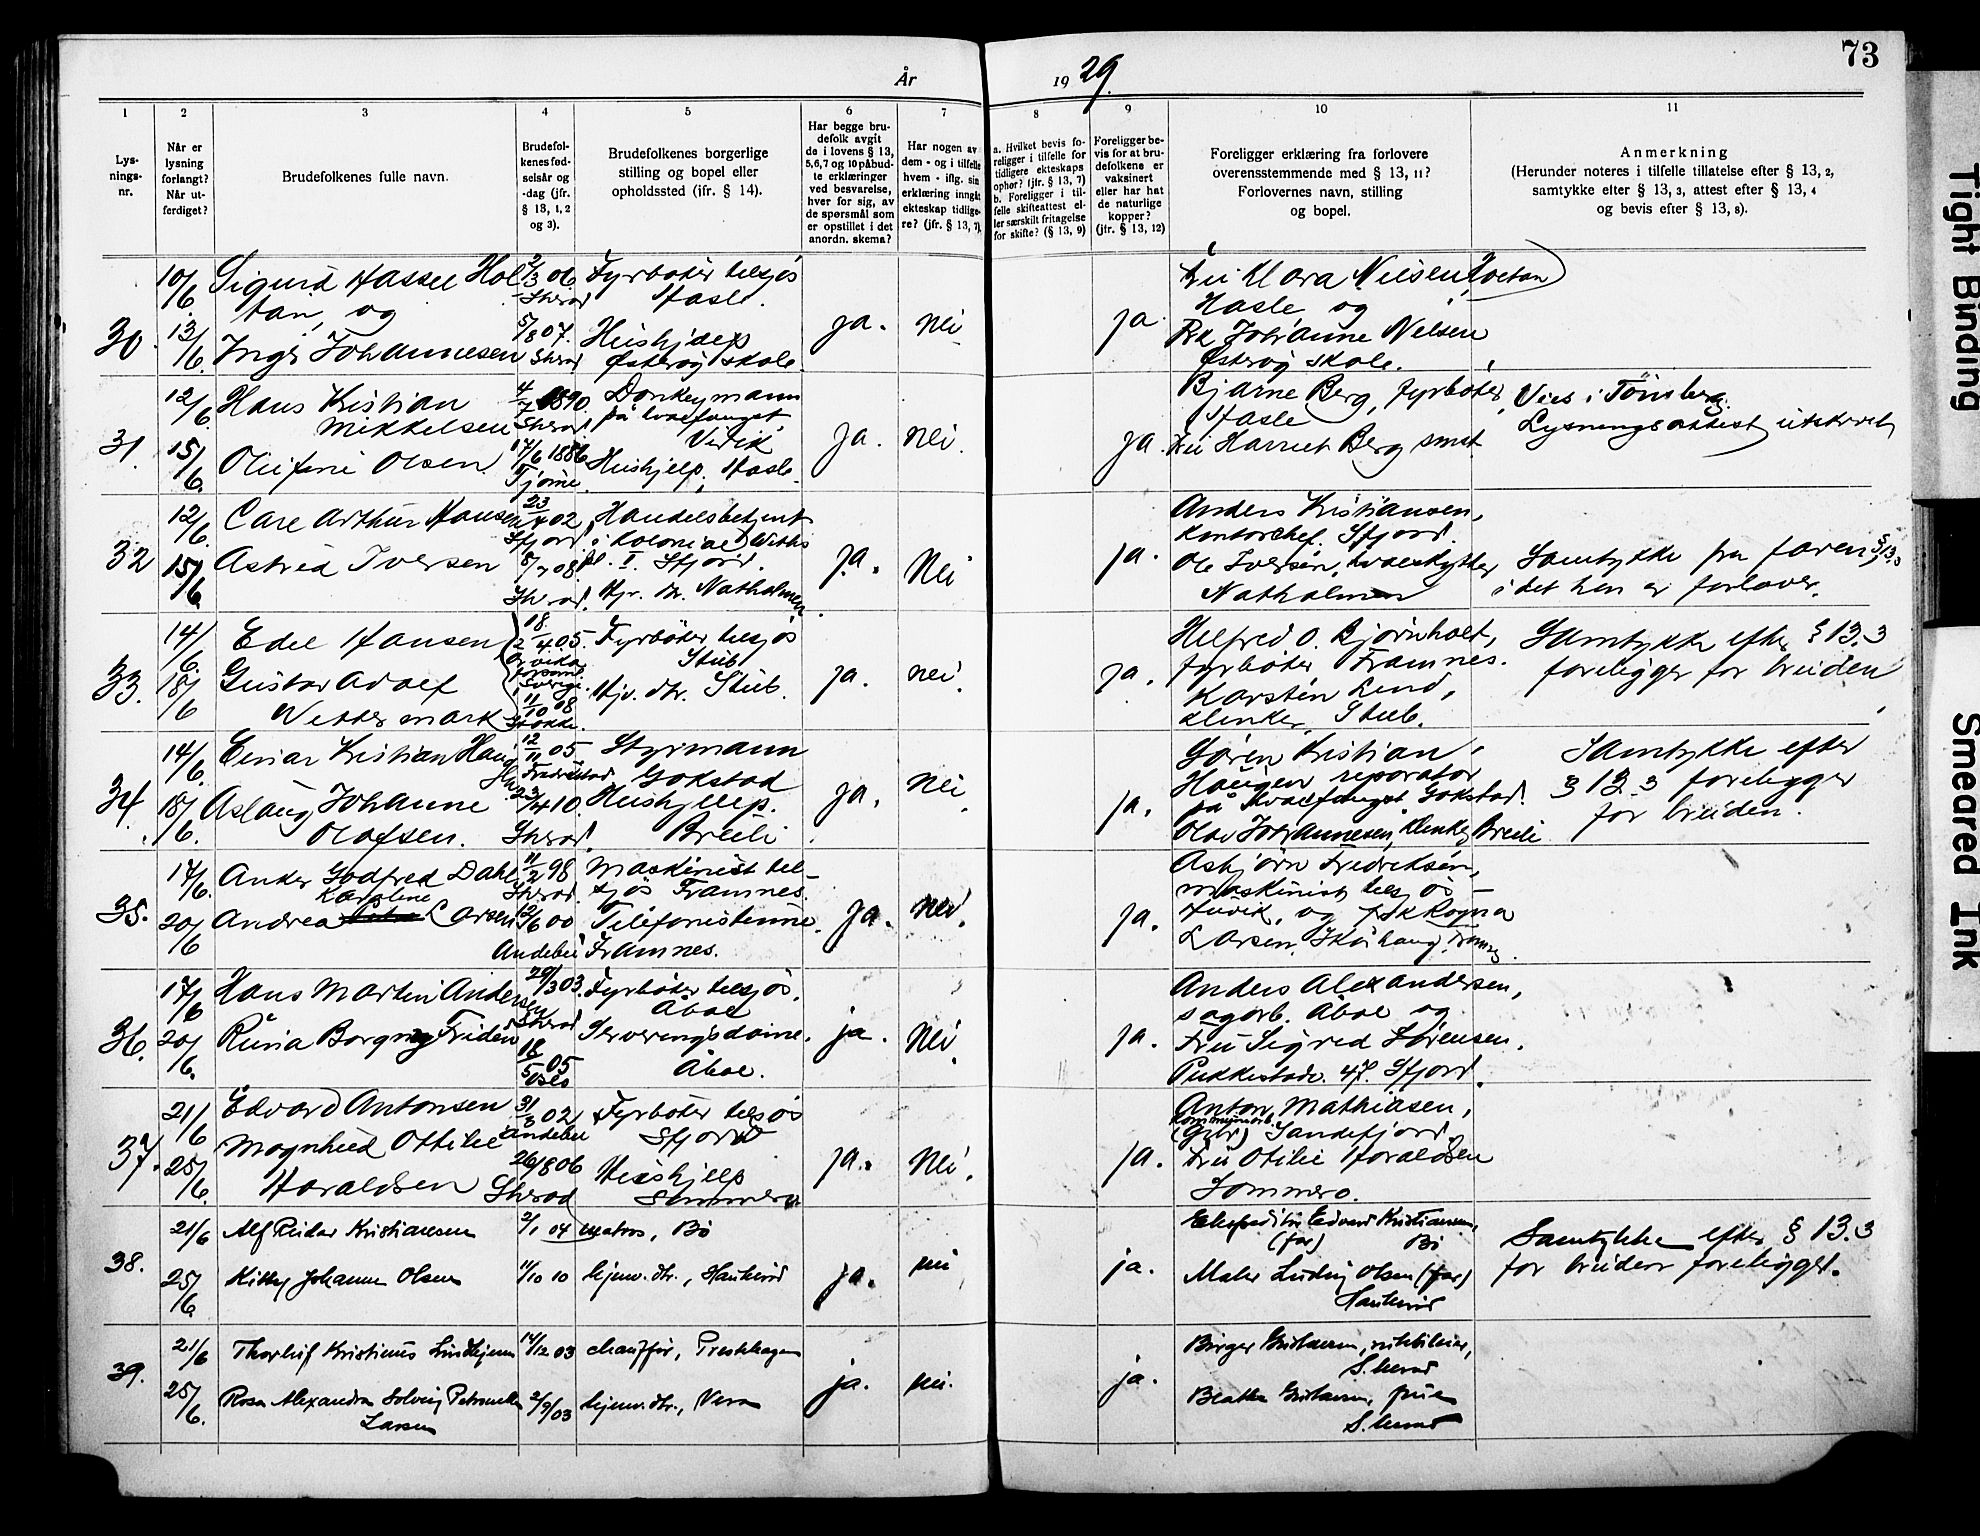 73
År 1929.
1 2 3 4 5 6 7 8 9 10 11
Lysningsnr.
Når er lysning forlangt? Når utferdiget?
Brudefolkenes fulle navn.
Brudefolkenes fødselsår og -dag (jfr. § 13, 1, 2 og 3).
Brudefolkenes borgerlige stilling og bopel eller opholdssted (jfr. § 14).
Har begge brudefolk avgitt de i lovens § 13, 5,6,7 og 10 påbudte erklæringer ved besvarelse, hver for sig, av de spørsmål som er opstillet i det anordn. skema?
Har nogen av dem - og i tilfelle hvem - iflg. sin erklæring inngått ekteskap tidligere? (jfr. § 13, 7)
a. Hvilket bevis foreligger i tilfelle for tidligere ekteskaps ophør? (jfr. § 13, 7) b. Foreligger i tilfelle skifteattest eller særskilt fritagelse for skifte? (§ 13, 9)
Foreligger bevis for at brudefolkene er vaksinert eller har hat de naturlige kopper? (jfr. § 13, 12)
Foreligger erklæring fra forlovere overensstemmende med § 13, 11? Forlovernes navn, stilling og bopel.
Anmerkning
(Herunder noteres i tilfelle tillatelse efter § 13, 2, samtykke efter § 13, 3, attest efter § 13, 4 og bevis efter § 13, 8).
30. 10/6. 13/6.
Sigurd Hassel Holtan, og
2/3 06 Sherad
Fyrbøter tilsjøs Hasle.
Inga Johannesen
5/8 07. Sherad
Hushjelp Østerøy skole.
ja. nei ja.
Fru Klara Nilsen Holtan
Hasle og
Frk Johanne Nilsen
Østerøy skole.
31. 12/6. 15/6.
Hans Kristian Mikkelsen
4/7 1890. Sherad.
Donkeymann på hvalfangst Vesvik
Olufine Olsen.
17/6 1886 Tjøme.
Hushjelp, Hasle.
ja. nei. ja.
Bjarne Berg, fyrbøter, Hasle
Fru Harriet Berg smst
Vies i Tønsberg.
Lysningsattest utskrevet
32 12/6. 15/6.
Carl Arthur Hansen
23/4 02 Sfjord.
Handelsbetjent i kolonial Sfjord.
Astrid Iversen
8/7 08. Sherad.
Hjv. dr. Natholmen.
ja. Nei ja.
Anders Kristiansen,
Kontorchef. Sfjord.
Ole Iversen, hvalskytter
Natholmen
Samtykke fra faren § 13.3
i det han er forlover.
33. 14/6. 18/6
Edel Hansen
Gustav Adolf Wettermark
18/4 05. Arvika Sverige.
11/10 08 Stokke.
Fyrbøter tilsjøs Stub
Hjv. dtr. Stub.
ja. nei. ja.
Hilfred O. Bjørnholt,
fyrbøter Framnes.
Karsten Lund,
klinker, Stub.
Samtykke efter § 13.3
foreligger for bruden
34. 14/6. 18/6.
Einar Kristian Haugen
12/11 05 Fredrikstad
Styrmann Gokstad
Aslaug Johanne Olafsen.
23/4 10. Sherad.
Hushjelp. Breili
ja. nei. ja.
Søren Kristian
Haugen reparatør
på hvalfangst, Gokstad.
Olav Johannesen, klinker, Breili
Samtykke efter
§ 13.3 foreligger
for bruden.
35. 17/6. 20/6
Anker Godfred Dahl
11/2 98 Sherad.
Maskinist tilsjøs Framnes.
Andrea Karoline Larsen
12/6 00 Andebu
Telefonistinne. Framnes.
ja. nei. ja.
Asbjørn Fredriksen,
maskinist tilsjøs
og frk Ragna
Larsen, Skiringhaug, Framnes.
36. 17/6 20/6.
Hans Martin Andersen
29/3 03. Sherad
Fyrbøter tilsjøs. Åbol
Runa Borgny Friden
18/5 05 Oslo
Serveringsdame. Åbol.
ja. Nei. ja.
Anders Alexandersen,
sagarb. Åbol og
Fru Sigrid Sørensen.
Pukkestadv. 47. Sfjord.
37. 21/6 25/6.
Edvard Antonsen
31/3 02 Andebu
Fyrbøter tilsjøs Sfjord
Magnhild Ottilie Haraldsen
26/8 06 Sherad
Hushjelp Sommerø
ja. Nei. ja.
Anton Mathiasen,
Kommunearb.
Sandefjord.
Fru Otilie Haraldsen
Sommerø.
38. 21/6 25/6
Alf Reidar Kristiansen
2/1 04
matros, Bø
Kitty Johanne Olsen
11/10 10
hjemv. dtr., Haukerød
ja. nei ja.
Ekspeditør Edvard Kristiansen, (far) Bø
Maler Ludvig Olsen (far)
Haukerød
Samtykke efter § 13.3
for bruden foreligger.
39. 21/6 25/6.
Thorleif Kristinus Lindhjem
14/12 03
chauffør, Presthagen
Rosa Alexandra Solveig Petronelle Larsen
2/9/03
hjemv. dtr., Vera
ja. nei. ja.
Birger Gustavsen,
S.herad
Beathe Gustavsen, frue
S.herad
Tight Binding
Smeared Ink